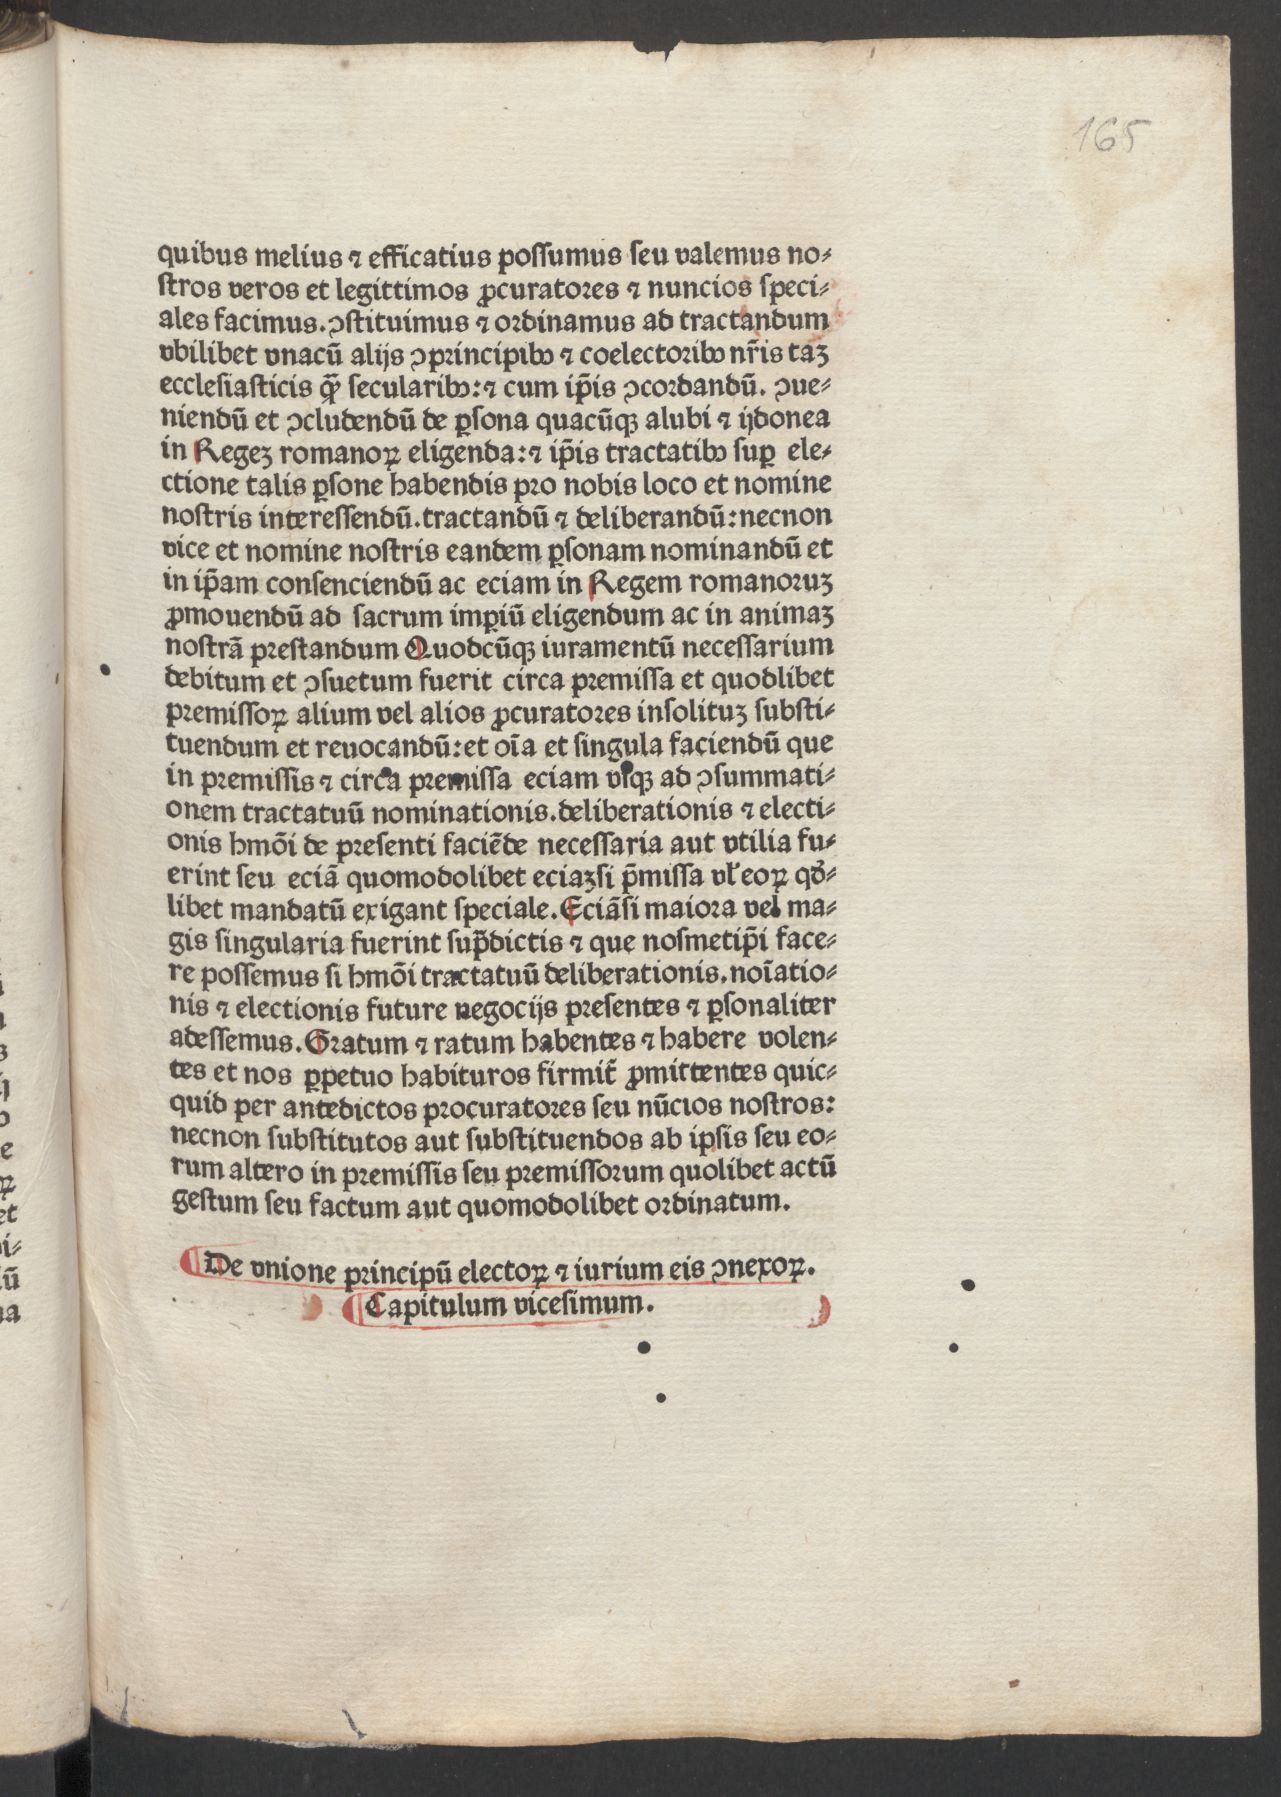 165
quibus melius ⁊ efficatius possumus seu valemus no⸗
stros veros et legittimos ꝓcuratores ⁊ nuncios speci⸗
ales facimus. ꝯstituimus ⁊ ordinamus ad tractandum
vbilibet vnacū alijs ꝯprincipibꝰ ⁊ coelectoribꝰ nr̃is taꝫ
ecclesiasticis ꝙ̃ secularibꝰ: ⁊ cum ip̃is ꝯcordandū. ꝯue⸗
niendū et ꝯcludendū de ꝑsona quacūqꝫ alubi ⁊ ijdonea
in Regeꝫ romanoꝝ eligenda: ⁊ ip̃is tractatibꝰ suꝑ ele⸗
ctione talis ꝑsone habendis pro nobis loco et nomine
nostris interessendū. tractandū ⁊ deliberandū: necnon
vice et nomine nostris eandem ꝑsonam nominandū et
in ip̃am consenciendū ac eciam in Regem romanoruꝫ
ꝓmouendū ad sacrum imꝑiū eligendum ac in animaꝫ
nostrā prestandum Quodcūqꝫ iuramentū necessarium
debitum et ꝯsuetum fuerit circa premissa et quodlibet
premissoꝝ alium vel alios ꝓcuratores insolituꝫ substi⸗
tuendum et reuocandū: et oīa et singula faciendū que
in premissis ⁊ circa premissa eciam vsqꝫ ad ꝯsummati⸗
onem tractatuū nominationis. deliberationis ⁊ electi⸗
onis hmōi de presenti faciēde necessaria aut vtilia fu⸗
erint seu eciā quomodolibet eciaꝫsi p̄missa vl̓ eoꝝ qd̓⸗
libet mandatū exigant speciale. Eciāsi maiora vel ma⸗
gis singularia fuerint sup̄dictis ⁊ que nosmetip̄i face⸗
re possemus si hmōi tractatuū deliberationis. noīatio⸗
nis ⁊ electionis future negocijs presentes ⁊ ꝑsonaliter
adessemus. Gratum ⁊ ratum habentes ⁊ habere volen⸗
tes et nos ꝑpetuo habituros firmit̃ ꝓmittentes quic⸗
quid per antedictos procuratores seu nūcios nostros:
necnon substitutos aut substituendos ab ipsis seu eo⸗
rum altero in premissis seu premissorum quolibet actū
gestum seu factum aut quomodolibet ordinatum.
De vnione principū electoꝝ ⁊ iurium eis ꝯnexoꝝ.
Capitulum vicesimum.